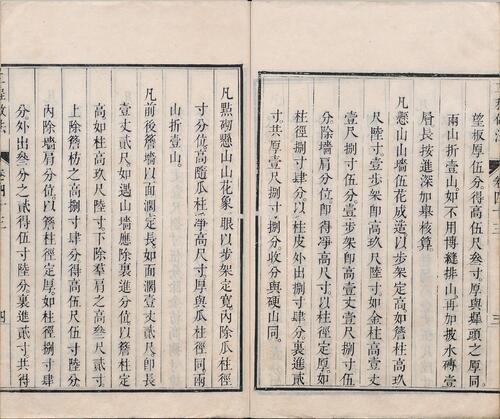 望板厚伍分得高與螺頭之厚同
兩山折壹山如不用博縫排山再加披水磚壹
層長按進深加舉核算
凡懸山山墻伍花成造以步架定高如簷柱高玖
尺陸寸壹步架即高玖尺陸寸如金柱高壹丈
壹尺捌寸伍分壹步架即高壹丈壹尺捌寸伍
分除墻肩分位即得淨高尺寸以柱徑定厚如
柱徑捌寸肆分以柱皮外出捌寸肆分裏進貳
寸共厚壹尺捌寸分收分與硬山同
凡點砌懸山山花象眼以步架定寬內除瓜柱徑
寸分位高隨瓜柱淨高尺寸厚與瓜柱徑同兩
山折壹山
凡前後簷墻以面濶定長如面濶壹丈貳尺即長
壹丈貳尺如遇山墻應除裏進分位以簷柱定
高如柱高玖尺陸寸下除羣肩之高叁尺貳寸
上除簷枋之高捌寸肆分得高伍尺伍寸陸分
內除墻肩分位以簷柱徑定厚如柱徑捌寸肆
分外出叁分之貳得伍寸陸分裏進貳寸共得